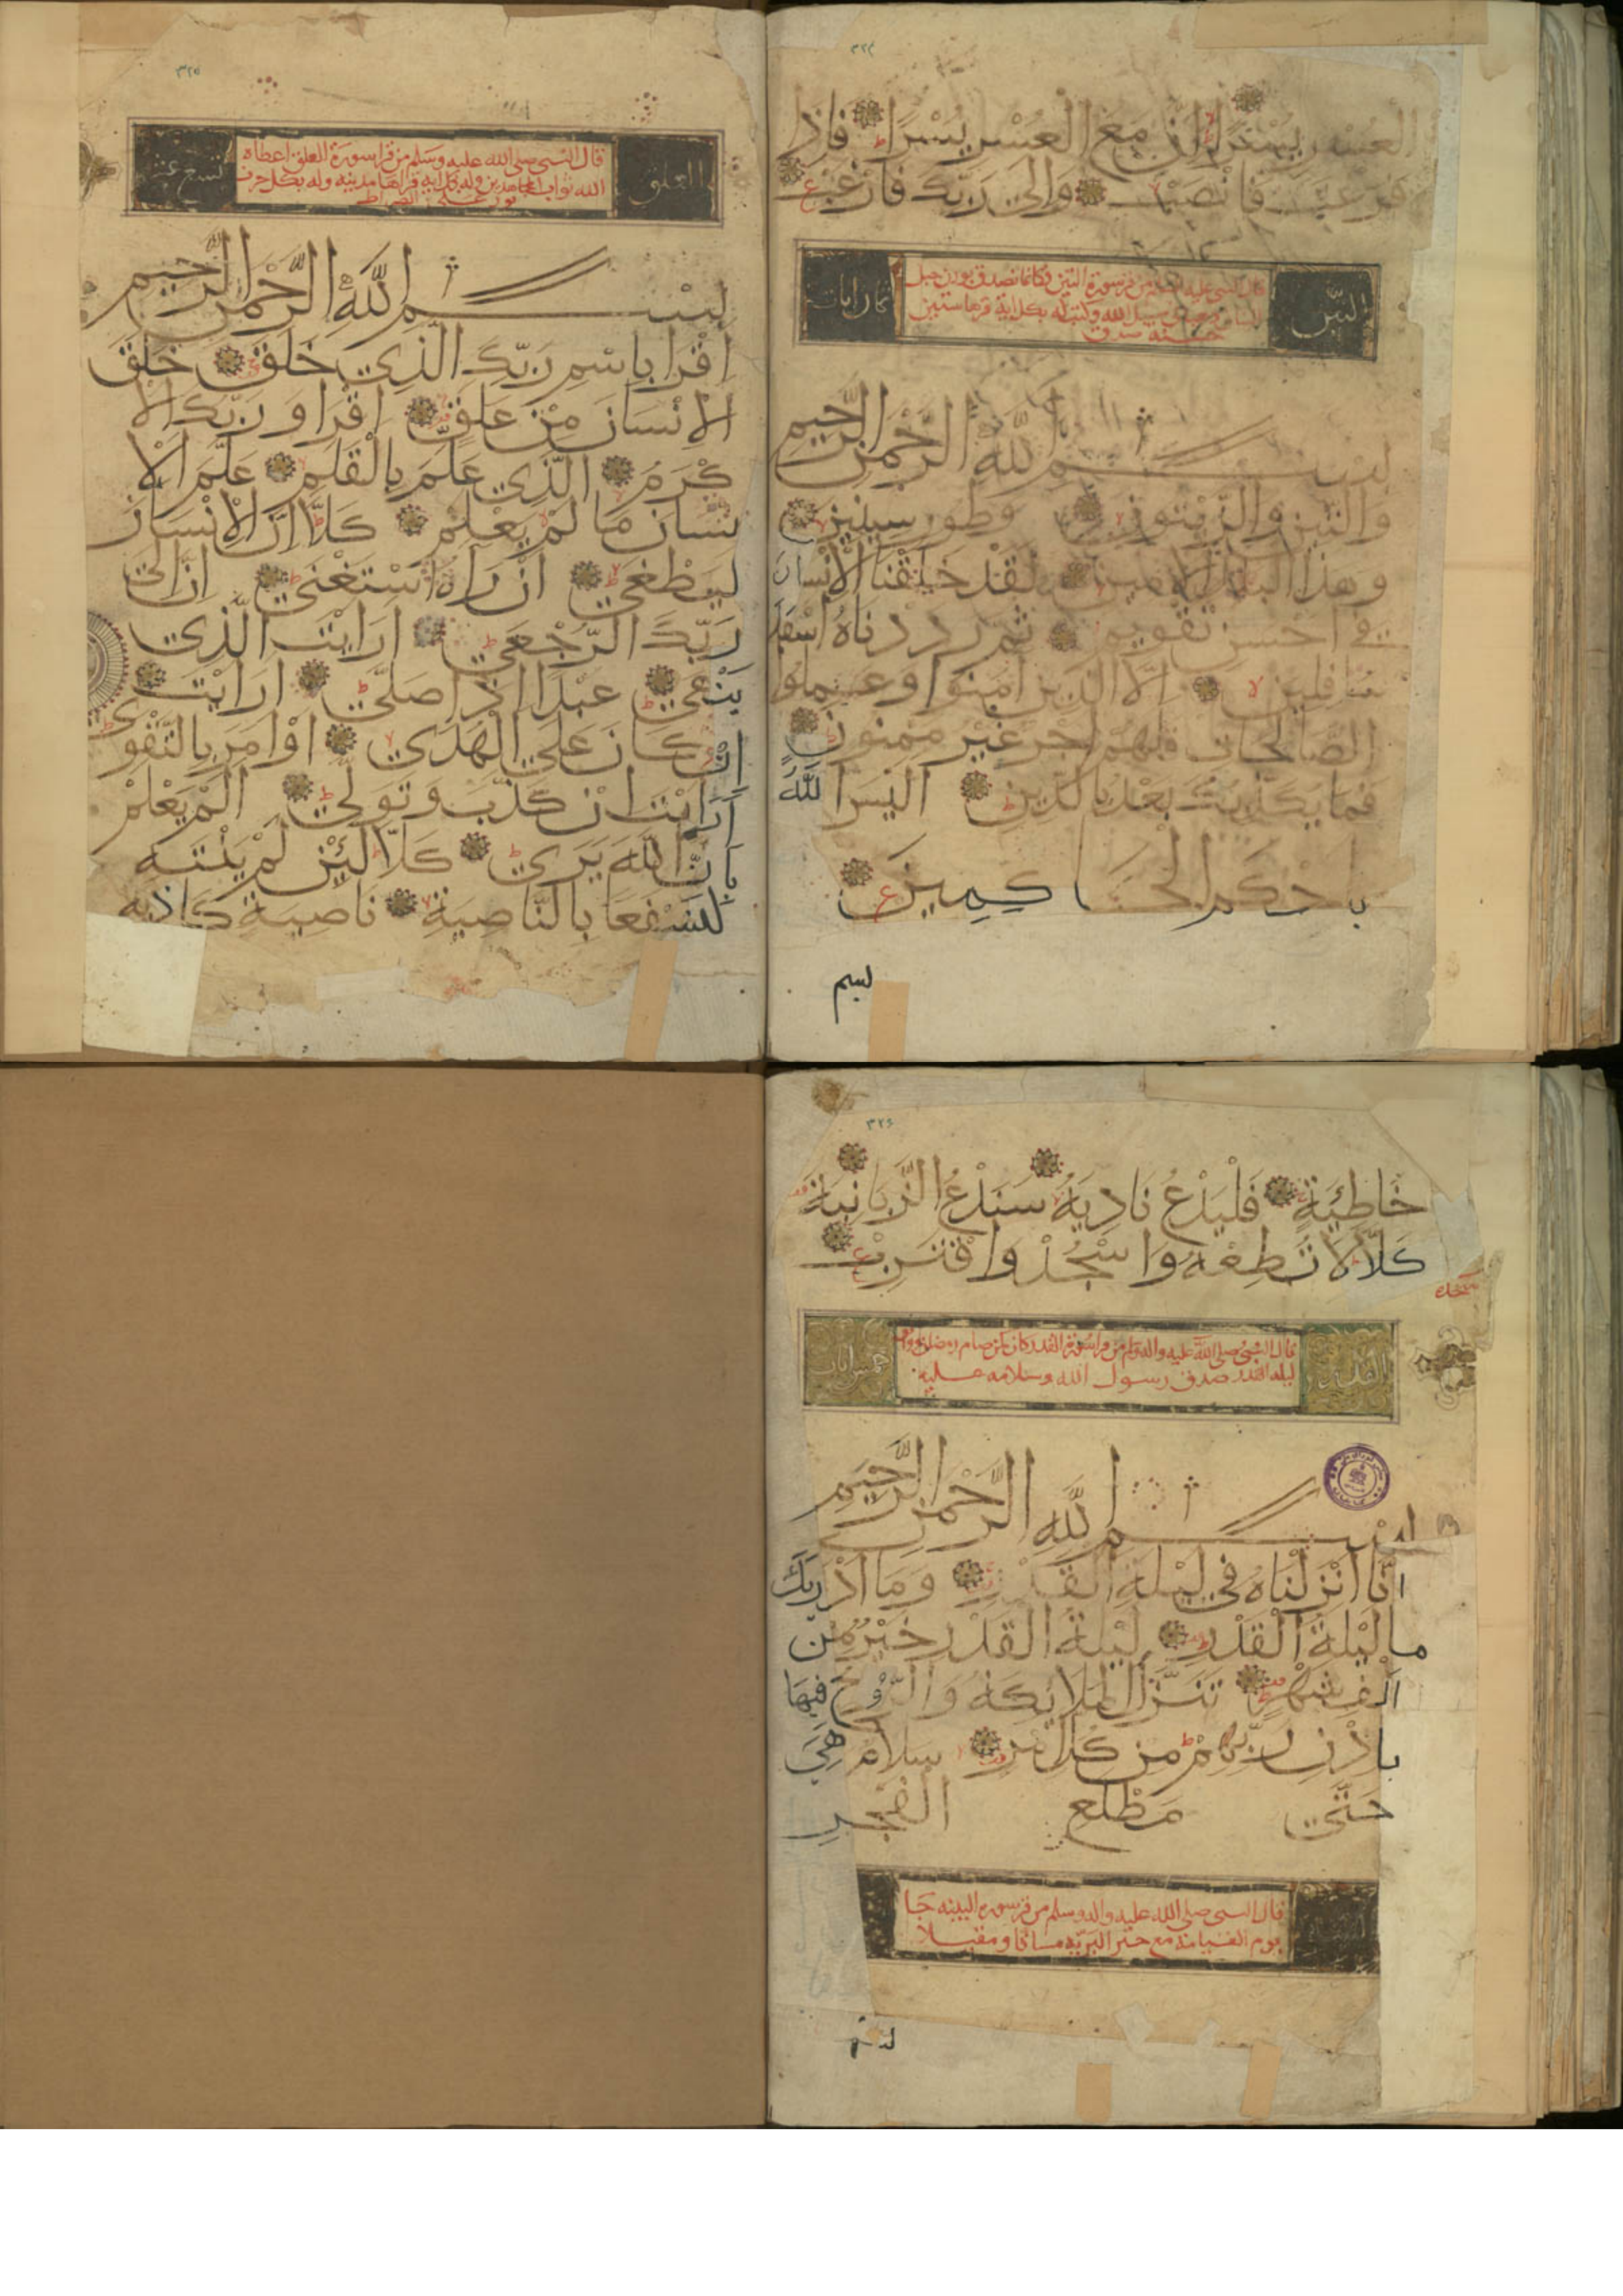 ٣٢٤
العسر يسرا ان مع العسر يسرا فاذا
فرغت فانصب والى ربك فارغب
التين
قال النبي عليه السلم من قرا سورة التين فكانما تصدق بوزن جبل
في سبيل الله وكتب له بكل اية قرها ستين
حسنه صدق
ثمان ايات
بسم الله الرحمن الرحيم
والتين والزيتون وطور سينين
وهذا البلد الامين لقد خلقنا الانسان
في احسن تقويم ثم رددناه اسفل
سافلين الا الذين امنوا وعملوا
الصالحات فلهم اجر غير ممنون
فما يكذبك بعد بالدين اليس الله
باحكم الحاكمين
بسم
٣٢٥
العلق
قال النبي صلى الله عليه وسلم من قرا سورة العلق اعطاه
الله ثواب المجاهدين وله بكل اية قراها مدينه وله بكل حرف
نور على الصراط
تسع عشر
بسم الله الرحمن الرحيم
اقرا باسم ربك الذي خلق خلق
الانسان من علق اقرا وربك الا
كرم الذي علم بالقلم علم الا
نسان ما لم يعلم كلا ان الانسان
ليطغى ان راه استغنى ان الى
ربك الرجعى ارايت الذي
ينهى عبدا اذا صلى ارايت
ان كان على الهدى او امر بالتقوى
ارايت ان كذب وتولى الم يعلم
بان الله يرى كلا لئن لم ينته
لنسفعا بالناصية ناصية كاذبه
٣٢٦
خاطئة فليدع ناديه سندع الزبانية
كلا لا تطعه واسجد واقترب
سجده
القدر
قال النبي صلى الله عليه واله وسلم من قرا سورة القدر كان كمن صام رمضان ووافق
ليله القدر صدق رسول الله وسلامه عليه
خمس ايات
بسم الله الرحمن الرحيم
انا انزلناه في ليلة القدر وما ادريك
ما ليلة القدر ليلة القدر خير من
الف شهر تنزل الملائكة والروح فيها
باذن ربهم من كل امر سلام هي
حتى مطلع الفجر
قال النبي صلى الله عليه واله وسلم من قرا سوره البينه جا
يوم القيامة مع خير البريه مسائا ومقيلا
بسم